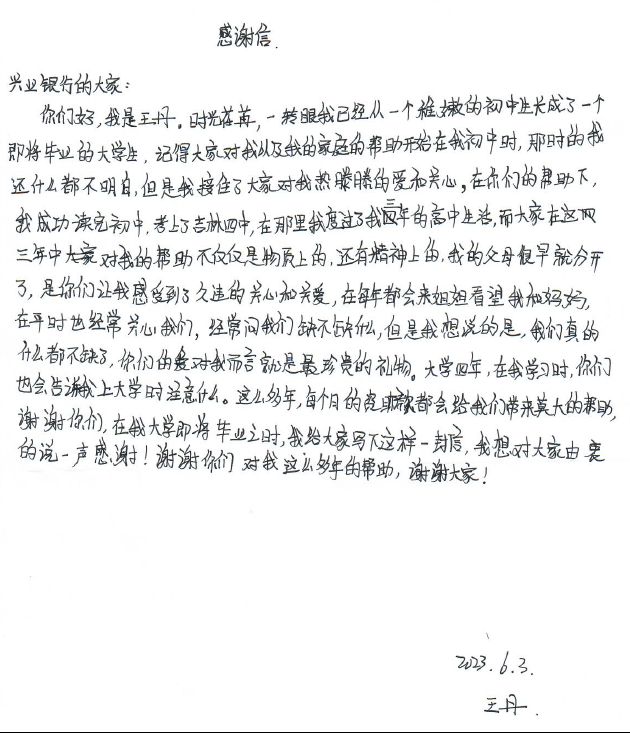 感谢信.
兴业银行的大家:
你们好,我是王丹。时光荏苒,一转眼我已经从一个稚嫩的初中生长成了一个
即将毕业的大学生,记得大家对我以及我的家庭的帮助开始在我初中时,那时的我
还什么都不明白,但是我接住了大家对我热腾腾的爱和关心。在你们的帮助下,
我成功读完初中,考上了吉林四中,在那里我度过了我三年的高中生活,而大家在这两
三年中大家对我的帮助不仅仅是物质上的,还有精神上的,我的父母很早就分开
了,是你们让我感受到了久违的关心和关爱,在每年都会来姐姐看望我和妈妈,
在平时也经常关心我们,经常问我们缺不缺什么,但是我想说的是,我们真的
什么都不缺了,你们的爱对我而言就是最珍贵的礼物。大学四年,在我学习时,你们
也会告诉我上大学时注意什么。这么多年,每个月的资助款都会给我们带来莫大的帮助,
谢谢你们,在我大学即将毕业之时,我给大家写下这样一封信,我想对大家由衷
的说一声感谢!谢谢你们对我这么多年的帮助,谢谢大家!
2023.6.3.
王丹.